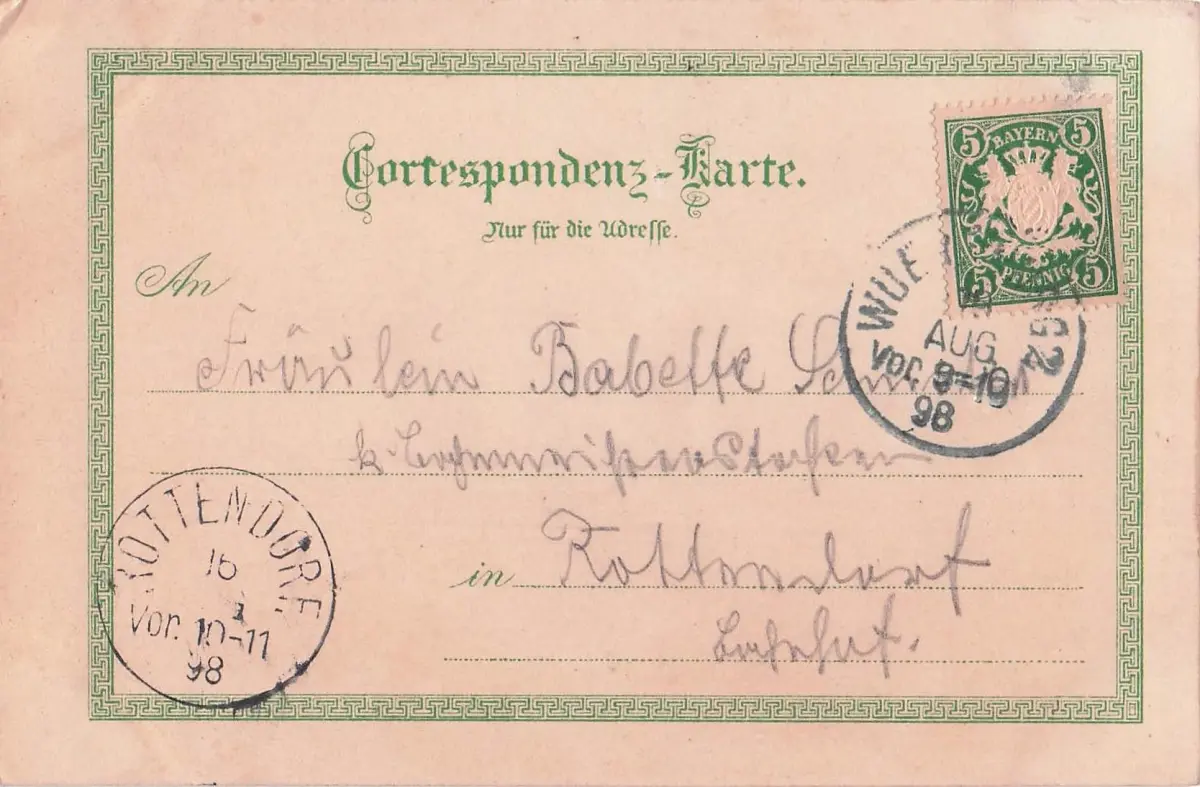 Correspondenz-Karte.
Nur für die Adresse.
5 BAYERN 5
5 PFENNIG 5
An
Fräulein Babette
k. Bahnmeisterstochter
in Rottendorf
Bahnhof.
AUG
Vor. 9=10
98
ROTTENDORF
16
Vor. 10-11
98